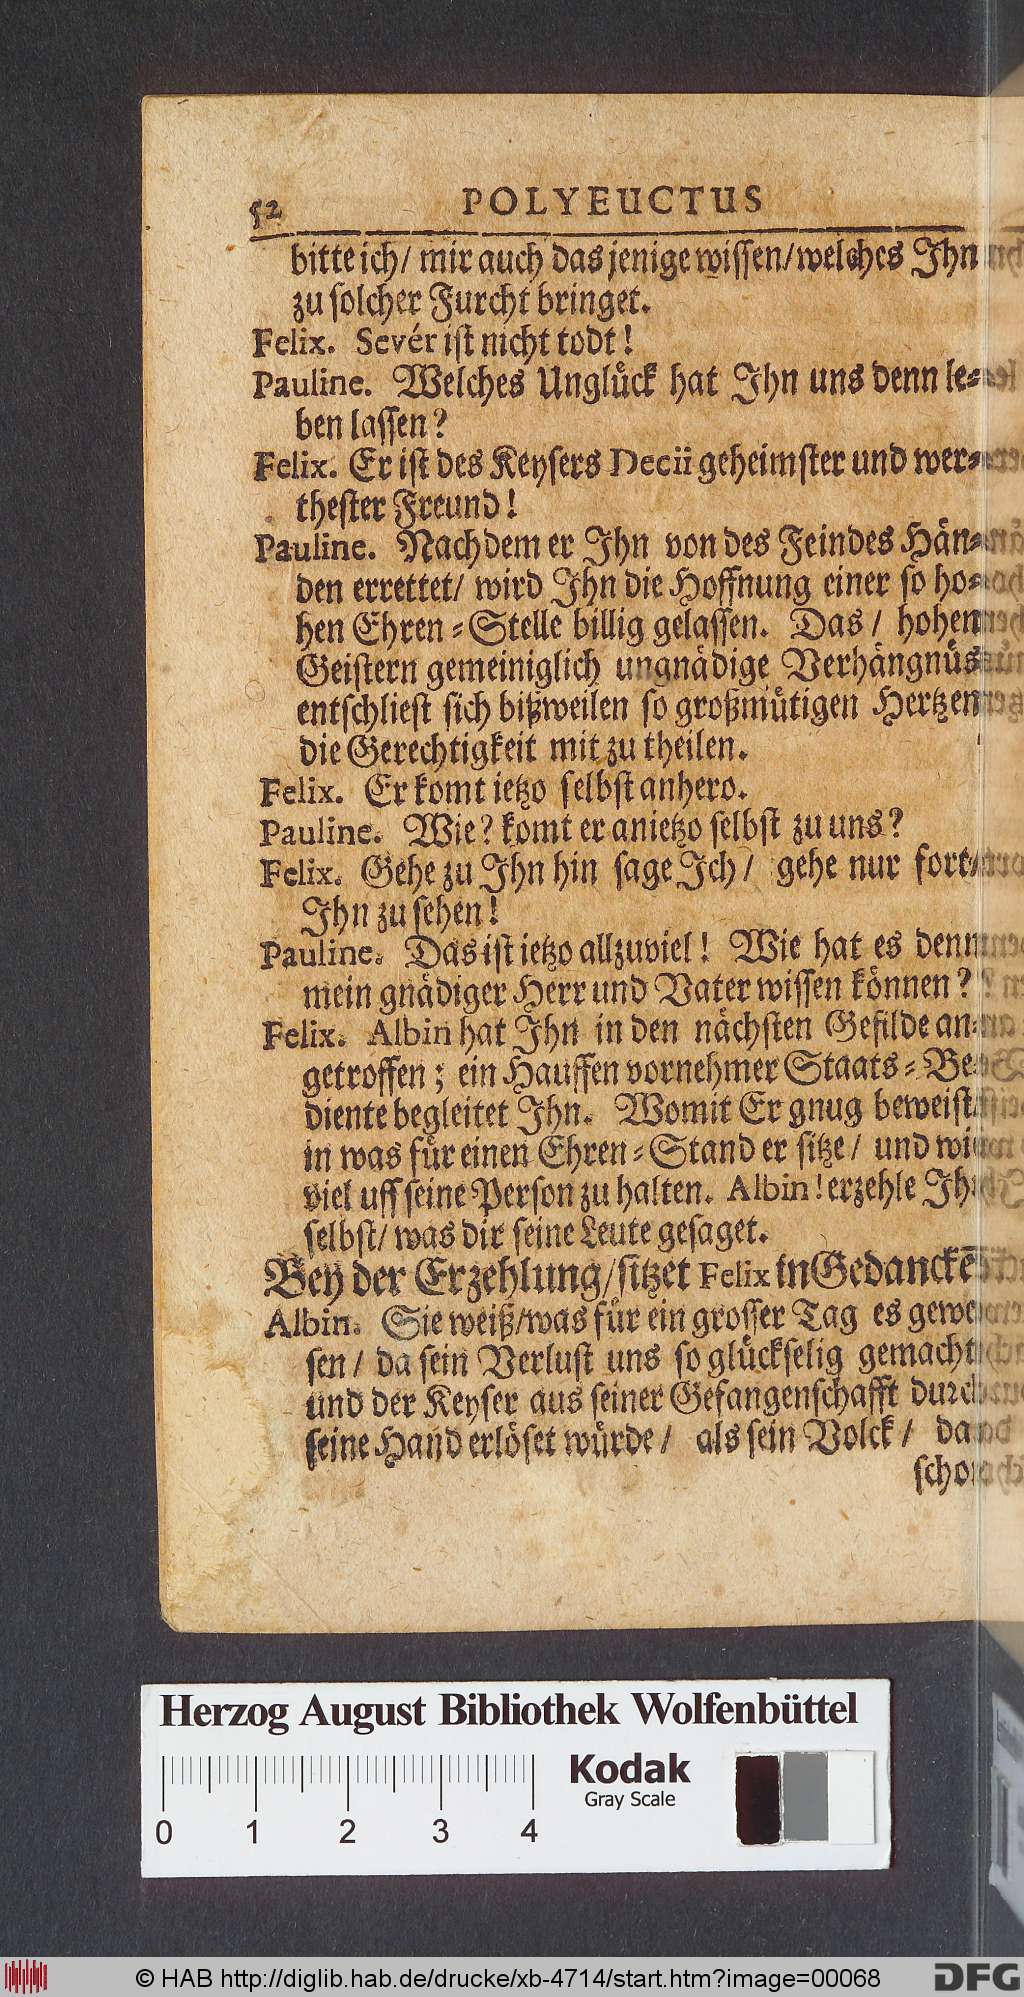 52 POLYEUCTUS
bitte ich/ mir auch dasjenige wissen/welches Ihn
zu solcher Furcht bringet.
Felix. Sevér ist nicht todt!
Pauline. Welches Unglück hat Ihn uns denn le-
ben lassen?
Felix. Er ist des Keysers Decii geheimster und wer-
thester Freund!
Pauline. Nachdem er Ihn von des Feindes Hän-
den errettet/ wird Ihn die Hoffnung einer so ho-
hen Ehren-Stelle billig gelassen. Das/ hohen
Geistern gemeiniglich ungnädige Verhängnüs
entschliest sich bißweilen so großmütigen Hertzen
die Gerechtigkeit mit zu theilen.
Felix. Er komt ietzo selbst anhero.
Pauline. Wie? komt er anietzo selbst zu uns?
Felix. Gehe zu Ihn hin sage Ich/ gehe nur fort/
Ihn zu sehen!
Pauline. Das ist ietzo allzuviel! Wie hat es denn
mein gnädiger Herr und Vater wissen können?
Felix. Albin hat Ihn in den nächsten Gefilde an-
getroffen; ein Hauffen vornehmer Staats-Be-
diente begleitet Ihn. Womit Er gnug beweist/
in was für einen Ehren-Stand er sitze/ und wie
viel uff seine Person zu halten. Albin! erzehle Ihr
selbst/ was dir seine Leute gesaget.
Bey der Erzehlung/sitzet Felix in Gedanckē
Albin. Sie weiß/was für ein grosser Tag es gewe-
sen/ da sein Verlust uns so glückselig gemacht
und der Keyser aus seiner Gefangenschafft durch
seine Hand erlöset würde/ als sein Volck/ da
schon
Herzog August Bibliothek Wolfenbüttel
Kodak
Gray Scale
0 1 2 3 4
© HAB http://diglib.hab.de/drucke/xb-4714/start.htm?image=00068
DFG